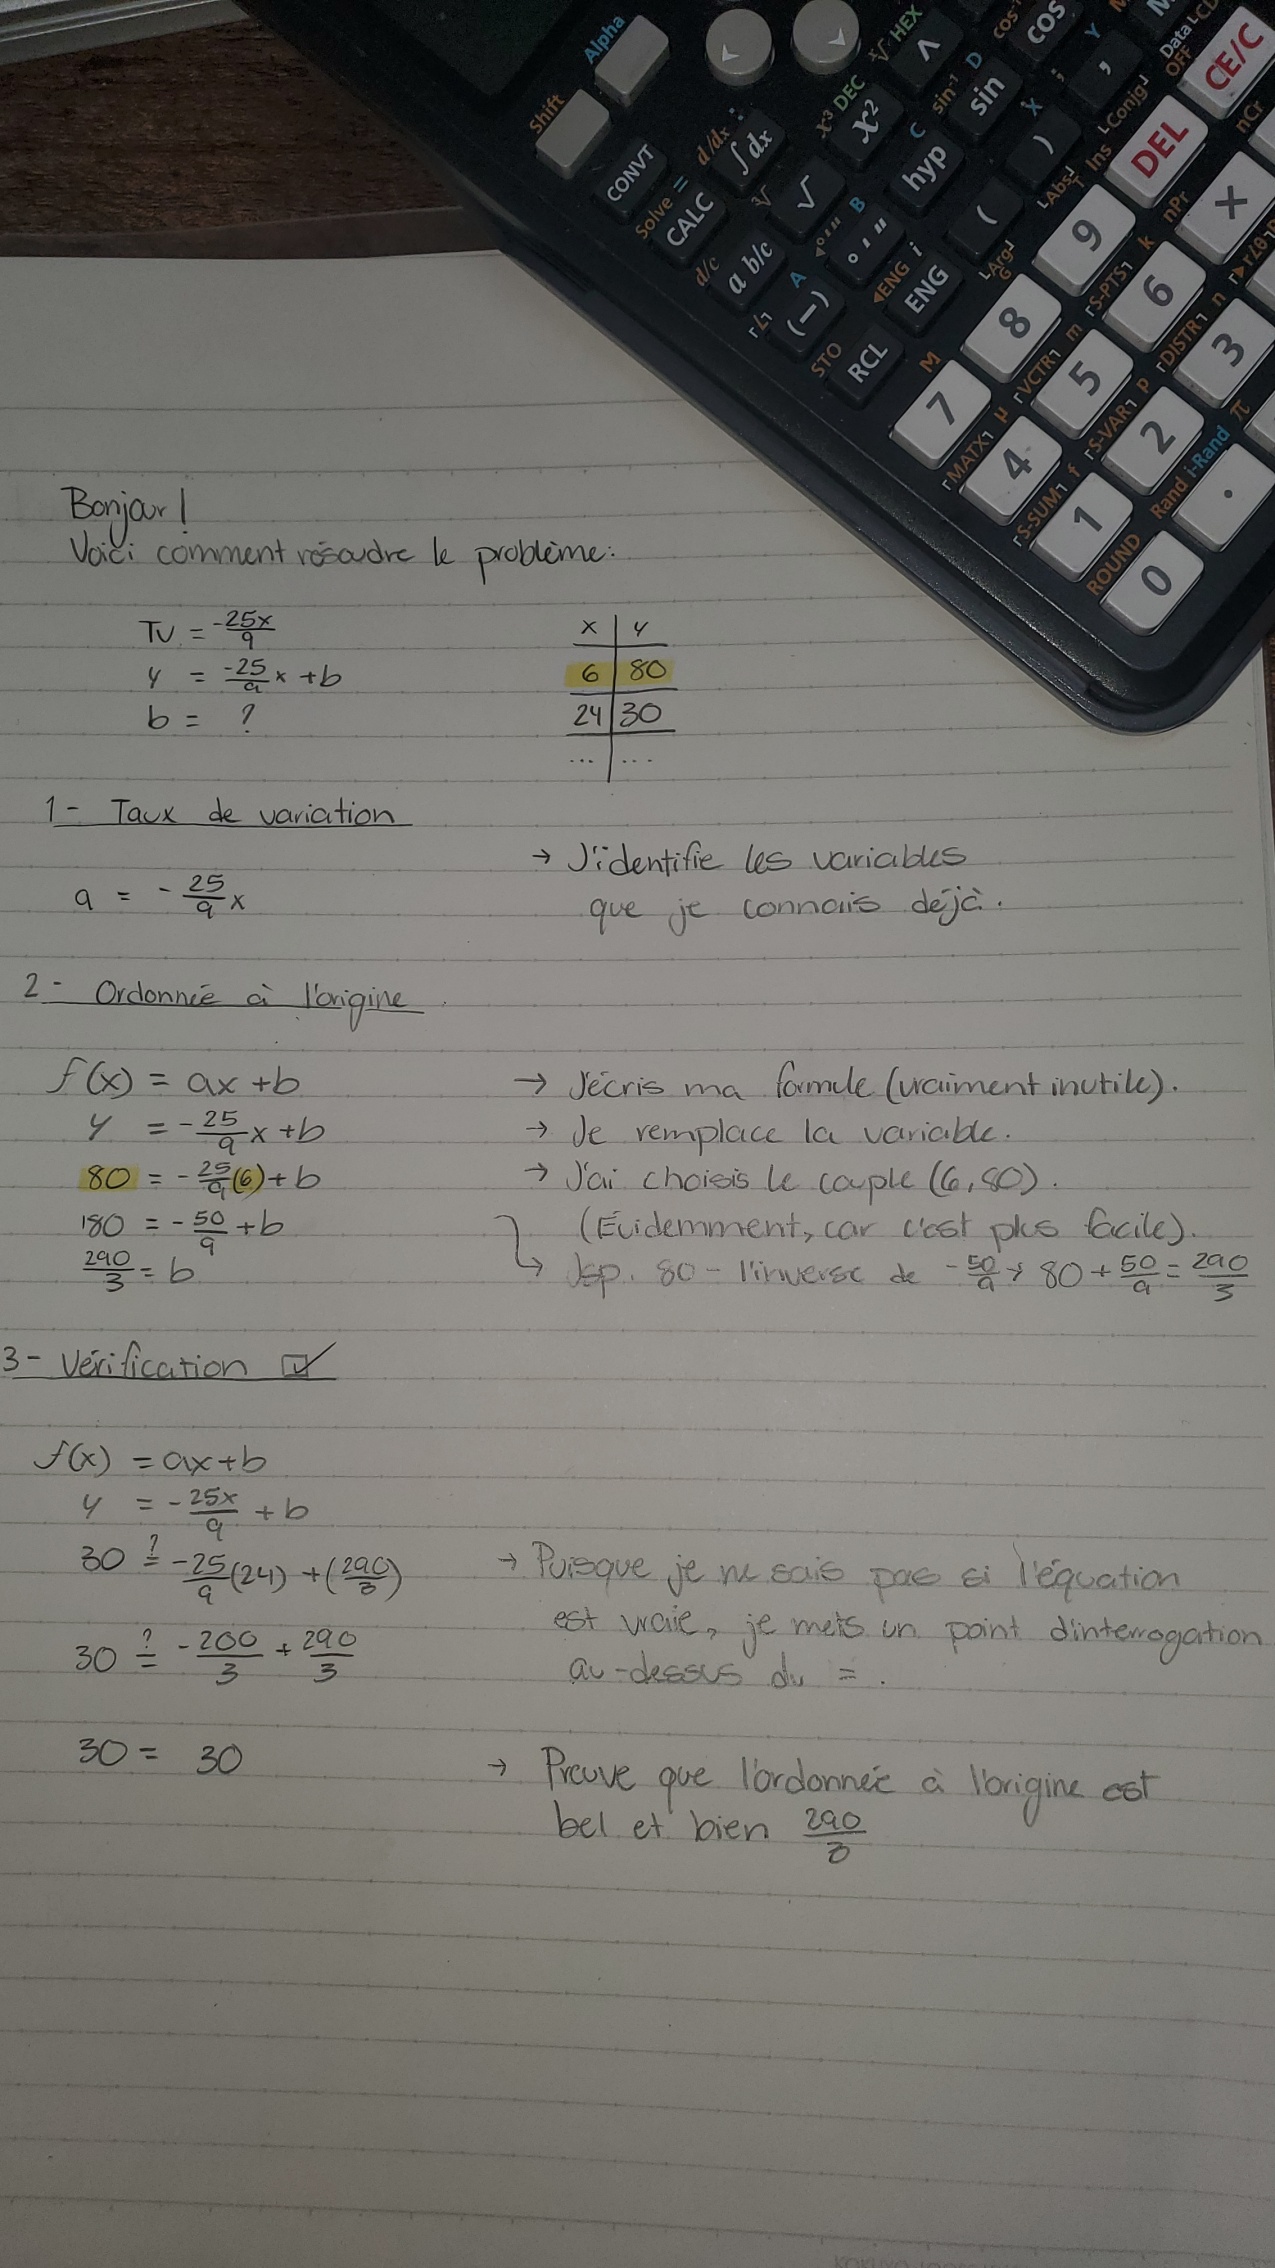 Alpha
Shift
HEX
cos⁻¹
COS
Data LCD
OFF
CE/C
x³ DEC
x²
sin⁻¹ D
sin
,
LConjg┘
DEL
nCr
CONVT
d/dx :
∫dx
C
hyp
X
)
LAbs┘
Ins
nPr
×
Solve =
CALC
∛
√
B
° ' "
(
9
k
d/c
a b/c
A
◀ENG i
ENG
LArg┘
8
┌S-PTS┐
6
┌∠┐
(—)
STO
RCL
M
7
┌VCTR┐ m
5
┌DISTR┐ n
3
┌MATX┐ μ
4
┌S-VAR┐ p
2
π
┌S-SUM┐ f
1
Rand i-Rand
.
ROUND
0
Bonjour!
Voici comment résoudre le problème:
TV = -25x/9
y = -25/9 x + b
b = ?
x | y
6 | 80
24 | 30
... | ...
1- Taux de variation
a = - 25/9 x → J'identifie les variables
que je connais déjà.
2- Ordonnée à l'origine
f(x) = ax + b → J'écris ma formule (vraiment inutile).
y = - 25/9 x + b → Je remplace la variable.
80 = - 25/9 (6) + b → J'ai choisis le couple (6, 80).
180 = - 50/9 + b (Évidemment, car c'est plus facile).
290/3 = b → Jsp. 80 - l'inverse de - 50/9 → 80 + 50/9 = 290/3
3- Vérification ☑
f(x) = ax + b
y = - 25x/9 + b
30 ≟ - 25/9 (24) + (290/3) → Puisque je ne sais pas si l'équation
est vraie, je mets un point d'interrogation
30 ≟ - 200/3 + 290/3 au-dessus du = .
30 = 30 → Preuve que l'ordonnée à l'origine est
bel et bien 290/3